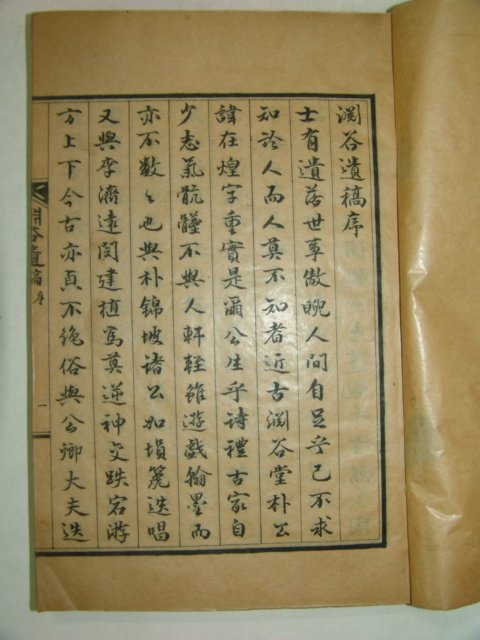 淵谷遺稿序
士有遺落世事傲睨人间自足乎己不求
知於人而人莫不知者近古淵谷堂朴公
諱在煌字重實是濔公生乎詩禮古家自
少志氣骯髒不與人軒輊雖遊戲翰墨而
亦不數〻也與朴錦坡諸公如塤篪迭唱
又與李濟遠閔建植爲莫逆神交跌宕游
方上下今古亦貞不絶俗與公卿大夫迭
淵谷遺稿 序 一